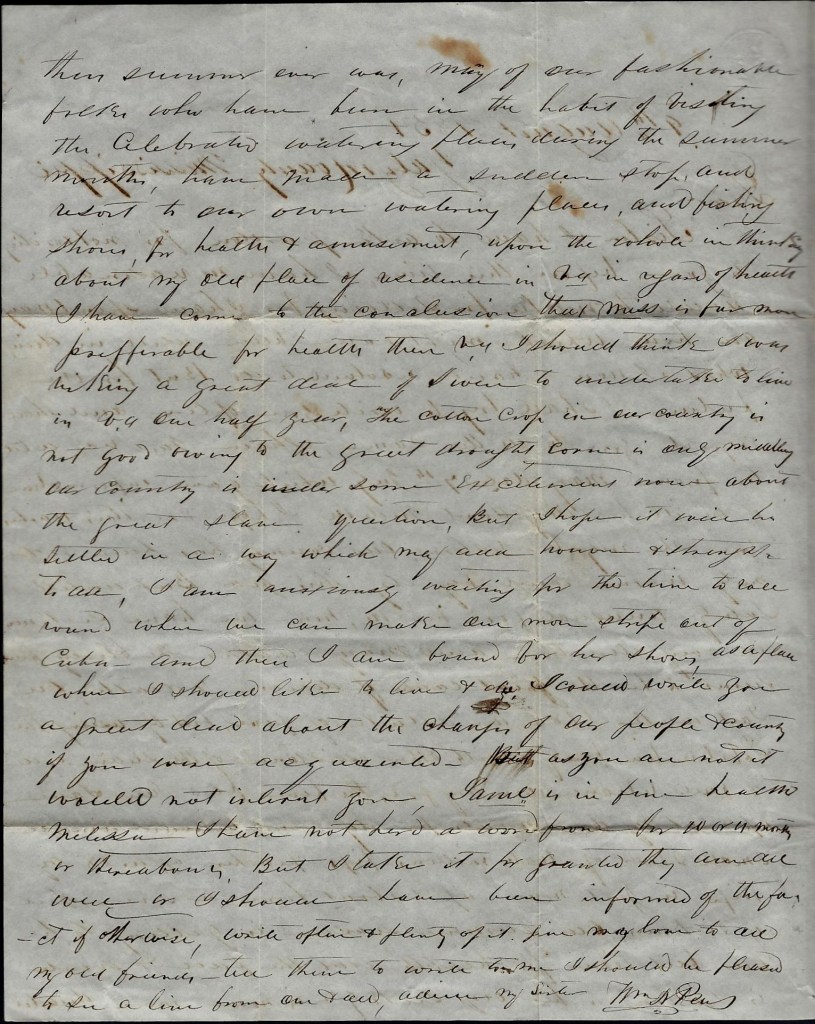 then summer ever was, many of our fashionable
folks who have been in the habit of visiting
the Celebrated watering places during the summer
months, have made a sudden stop, and
resort to our own watering places, and fishing
shores, for health & amusement, upon the whole in thinking
about my old place of residence in Va in regard of health
I have come to the conclusion that Miss is far more
prefferable for health then Va I should think I was
risking a great deal if I were to undertake to live
in Va one half year, The cotton Crop in our country is
not good owing to the great drought corn is only midling
our Country is under some Excitement now about
the great slave question, But I hope it will be
settled in a way which may add honour & strength
to all, I am anxiously waiting for the time to role
round when we can make one more stripe out of
Cuba and then I am bound for her shores, as a place
where I should like to live & die I could write you
a great deal about the changes of our people & county
if you were acquainted - But as you are not it
would not interest you, Saml is in fine health
Melissa I have not herd a word from for 10 or 11 months
or thereabouts, But I take it for granted they are all
well or I should have been informed of the fa-
-ct if otherwise, write often & plenty of it. give my love to all
my old friends - tell them to write to me I should be pleased
to see a line from one & all, adieu my Sister Wm